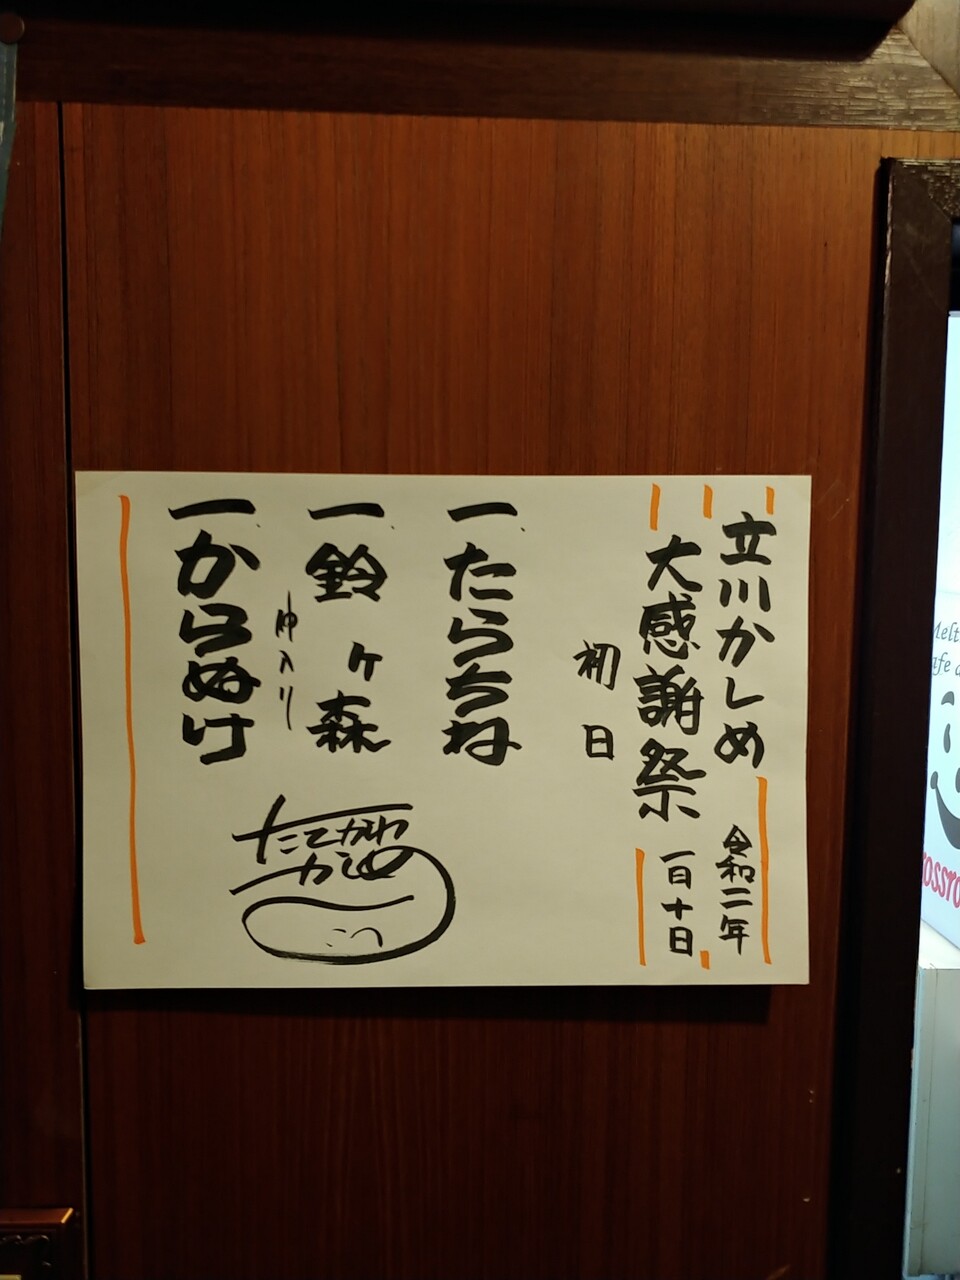 立川かしめ 令和二年
大感謝祭 一日十日
初日
一、たらちね
一、鈴ヶ森
仲入り
一、からぬけ
たてかわ
かしめ